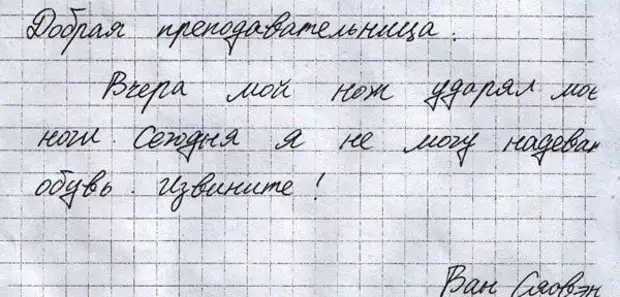 Добрая преподавательница.
Вчера мой нож ударял мое
ноги. Сегодня я не могу надеват
обувь. Извините!
Ван Сяовэн